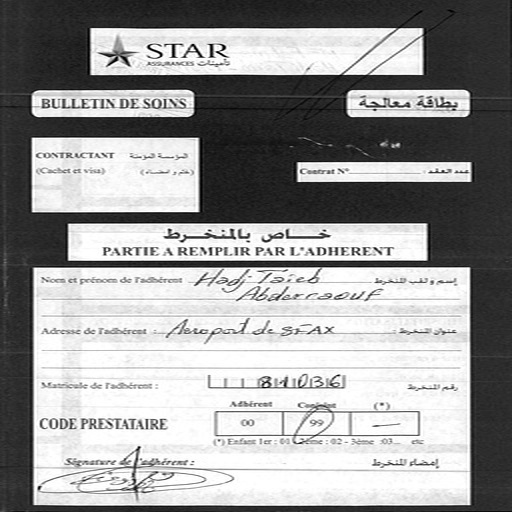 STAR
ASSURANCES تأمينات
BULLETIN DE SOINS بطاقة معالجة
CONTRACTANT المؤسسة المؤمنة
(Cachet et visa) (ختم و امضاء)
Contrat N° عدد العقد :
خاص بالمنخرط
PARTIE A REMPLIR PAR L'ADHERENT
Nom et prénom de l'adhérent Hadj Taieb إسم و لقب المنخرط
Abderraouf
Adresse de l'adhérent : Aeroport de SFAX عنوان المنخرط :
Matricule de l'adhérent : 81036 رقم المنخرط
Adhérent Conjoint (*)
CODE PRESTATAIRE 00 99 —
(*) Enfant 1er : 01 - 2ème : 02 - 3ème :03... etc
Signature de l'adhérent : إمضاء المنخرط